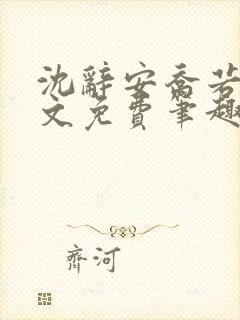 沈辞安乔若
文免费笔趣
齐河